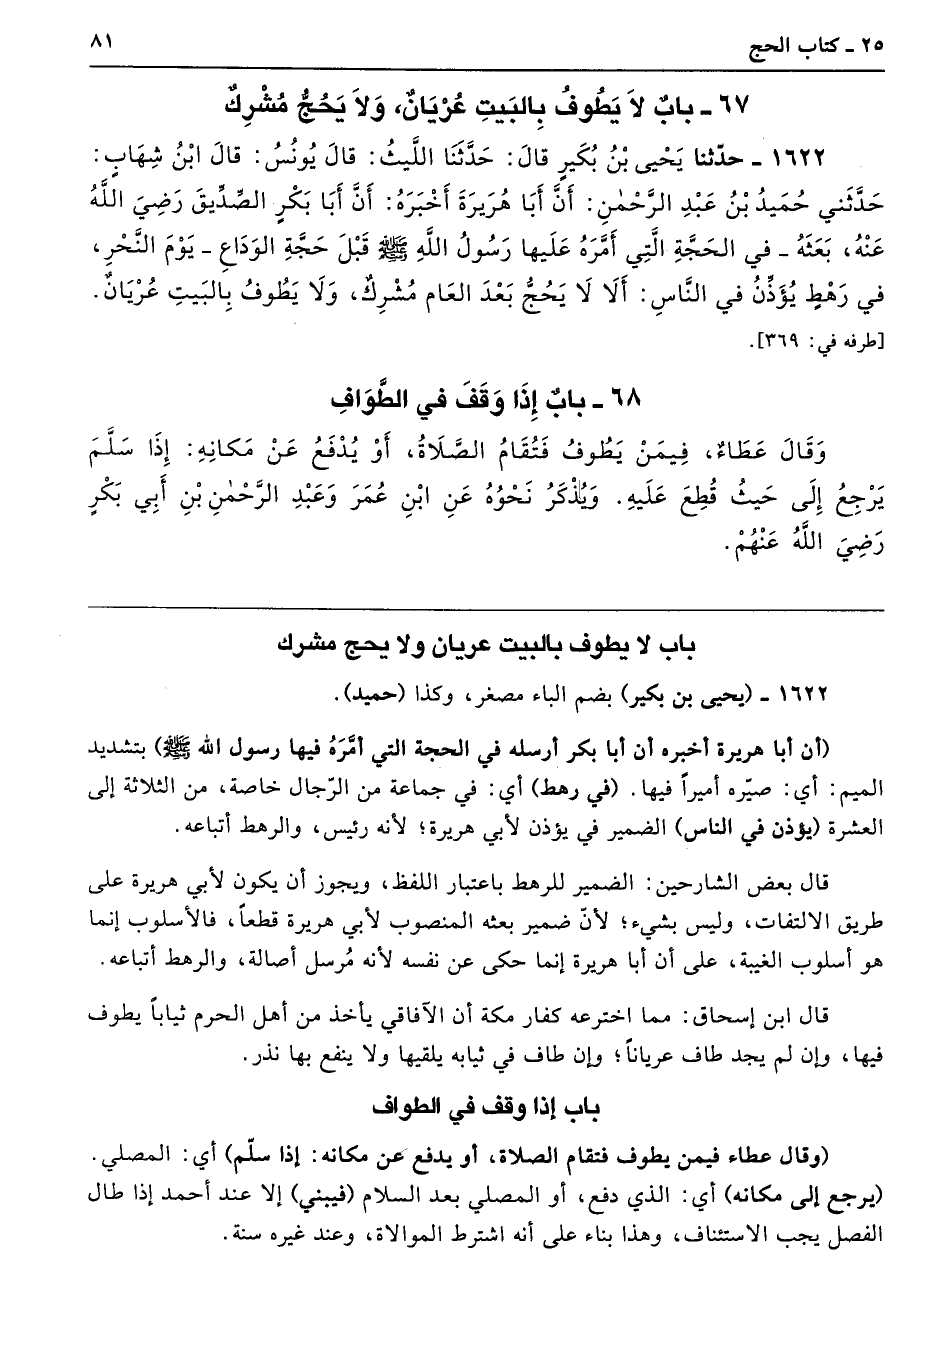 ٢٥ ـ كتاب الحج
٨١
٦٧ ـ بابٌ لاَ يَطُوفُ بِالبَيتِ عُرْيَانٌ، وَلاَ يَحُجُّ مُشْرِكٌ
١٦٢٢ ـ حدّثنا يَحْيى بْنُ بُكَيرٍ قالَ: حَدَّثَنَا اللَّيثُ: قالَ يُونُسُ: قالَ ابْنُ شِهَابٍ:
حَدَّثَني حُمَيدُ بْنُ عَبْدِ الرَّحْمٰنِ: أَنَّ أَبَا هُرَيرَةَ أَخْبَرَهُ: أَنَّ أَبَا بَكْرٍ الصِّدِّيقَ رَضِيَ اللَّهُ
عَنْهُ، بَعَثَهُ ـ في الحَجَّةِ الَّتِي أَمَّرَهُ عَلَيها رَسُولُ اللَّهِ ﷺ قَبْلَ حَجَّةِ الوَدَاعِ ـ يَوْمَ النَّحْرِ،
في رَهْطٍ يُؤَذِّنُ في النَّاسِ: أَلَا لَا يَحُجُّ بَعْدَ العَامِ مُشْرِكٌ، وَلَا يَطُوفُ بِالبَيتِ عُرْيَانٌ.
[طرفه في: ٣٦٩].
٦٨ ـ بابٌ إِذَا وَقَفَ في الطَّوَافِ
وَقَالَ عَطَاءٌ، فِيمَنْ يَطُوفُ فَتُقَامُ الصَّلَاةُ، أَوْ يُدْفَعُ عَنْ مَكانِهِ: إِذَا سَلَّمَ
يَرْجِعُ إِلَى حَيثُ قُطِعَ عَلَيهِ. وَيُذْكَرُ نَحْوُهُ عَنِ ابْنِ عُمَرَ وَعَبْدِ الرَّحْمٰنِ بْنِ أَبِي بَكْرٍ
رَضِيَ اللَّهُ عَنْهُمْ.
باب لا يطوف بالبيت عريان ولا يحج مشرك
١٦٢٢ ـ (يحيى بن بكير) بضم الباء مصغر، وكذا (حميد).
(أن أبا هريرة أخبره أن أبا بكر أرسله في الحجة التي أمَّرَهُ فيها رسول الله ﷺ) بتشديد
الميم: أي: صيّره أميراً فيها. (في رهط) أي: في جماعة من الرّجال خاصة، من الثلاثة إلى
العشرة (يؤذن في الناس) الضمير في يؤذن لأبي هريرة؛ لأنه رئيس، والرهط أتباعه.
قال بعض الشارحين: الضمير للرهط باعتبار اللفظ، ويجوز أن يكون لأبي هريرة على
طريق الالتفات، وليس بشيء؛ لأنّ ضمير بعثه المنصوب لأبي هريرة قطعاً، فالأسلوب إنما
هو أسلوب الغيبة، على أن أبا هريرة إنما حكى عن نفسه لأنه مُرسل أصالة، والرهط أتباعه.
قال ابن إسحاق: مما اخترعه كفار مكة أن الآفاقي يأخذ من أهل الحرم ثياباً يطوف
فيها، وإن لم يجد طاف عرياناً؛ وإن طاف في ثيابه يلقيها ولا ينفع بها نذر.
باب إذا وقف في الطواف
(وقال عطاء فيمن يطوف فتقام الصلاة، أو يدفع عن مكانه: إذا سلّم) أي: المصلي.
(يرجع إلى مكانه) أي: الذي دفع، أو المصلي بعد السلام (فيبني) إلا عند أحمد إذا طال
الفصل يجب الاستئناف، وهذا بناء على أنه اشترط الموالاة، وعند غيره سنة.